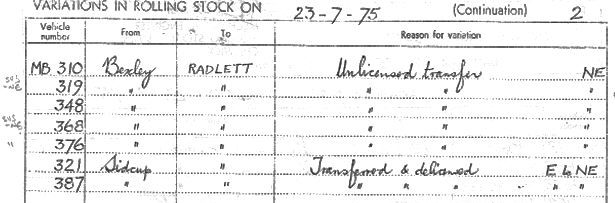 VARIATIONS IN ROLLING STOCK ON 23-7-75 (Continuation) 2
Vehicle number From To Reason for variation
MB 310 Bexley RADLETT Unlicensed transfer NE
319 " " " " "
348 " " " " "
368 " " " " "
376 " " " " "
321 Sidcup " Transferred & delicensed E to NE
387 " " " " " " "